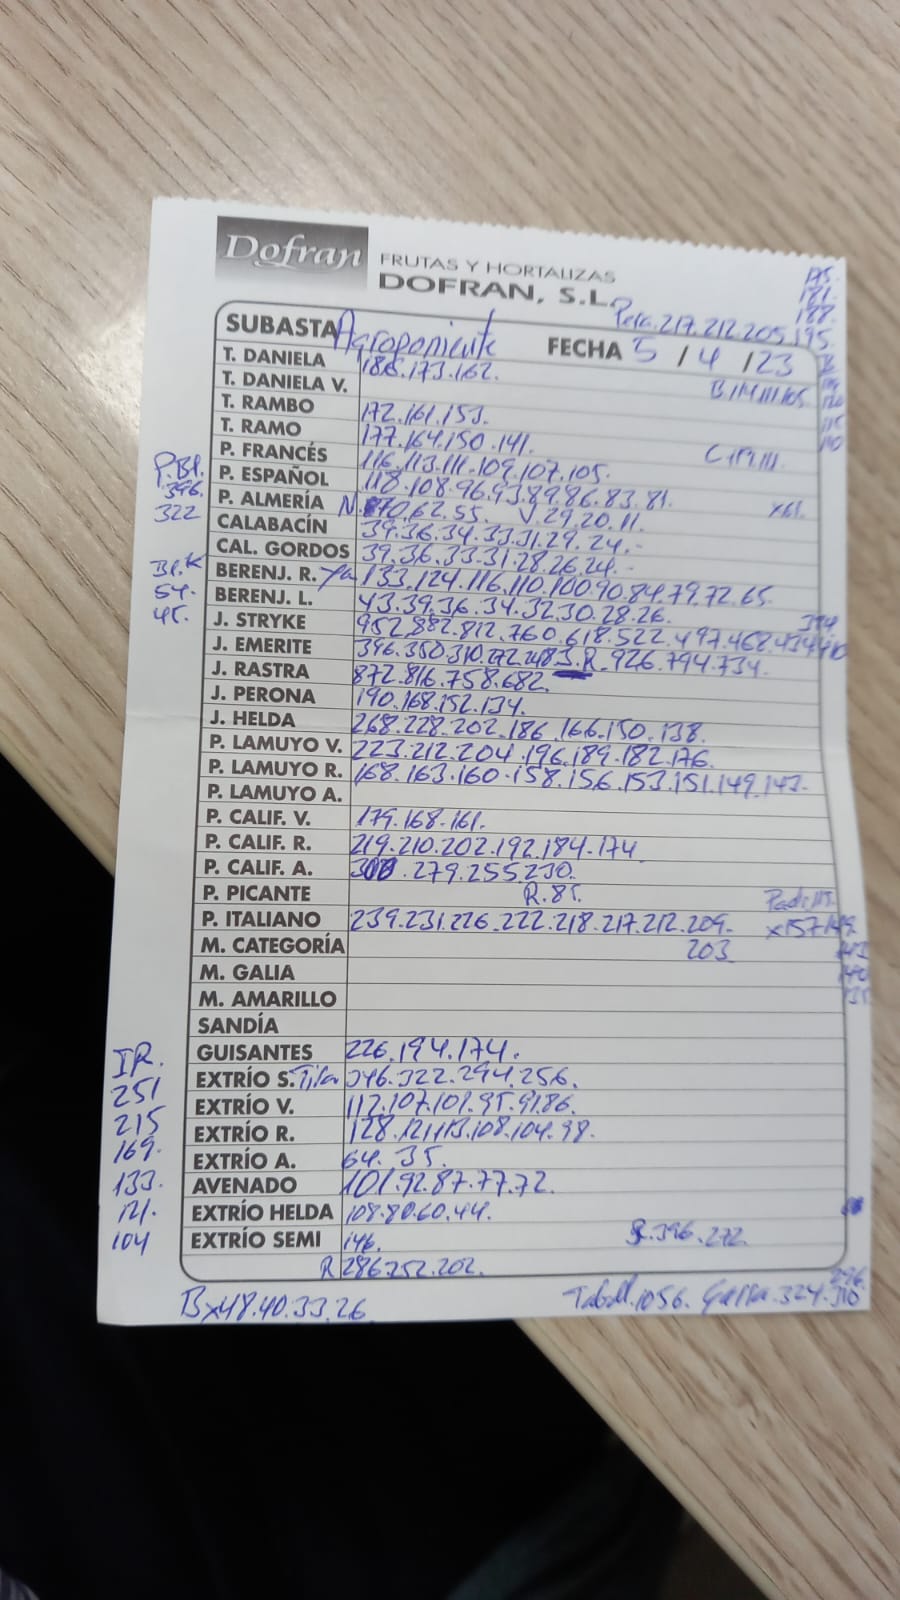 Dofran FRUTAS Y HORTALIZAS
DOFRAN, S.L.
175.
181.
188.
Pera.217.212.205.195.
SUBASTA Agroponiente FECHA 5 / 4 / 23
T. DANIELA 186.173.162.
T. DANIELA V.
T. RAMBO 172.161.153.
T. RAMO 177.164.150.141.
P. FRANCÉS 116.113.111.109.107.105.
P. ESPAÑOL 118.108.96.93.89.86.83.81.
P. ALMERÍA N. 70.62.55. V.29.20.11.
CALABACÍN 39.36.34.33.31.29.24.-
CAL. GORDOS 39.36.33.31.28.26.24.-
BERENJ. R. 133.124.116.110.100.90.84.79.72.65.
BERENJ. L. 43.39.36.34.32.30.28.26.
J. STRYKE 952.882.812.760.618.522.497.462.434.410
J. EMERITE 396.350.310.272.248 R.926.794.734.
J. RASTRA 872.816.758.682.
J. PERONA 190.168.152.134.
J. HELDA 268.228.202.186.166.150.138.
P. LAMUYO V. 223.212.204.196.189.182.176.
P. LAMUYO R. 168.163.160.158.156.153.151.149.143.
P. LAMUYO A.
P. CALIF. V. 179.168.161.
P. CALIF. R. 219.210.202.192.184.174
P. CALIF. A. 300.279.255.230.
P. PICANTE R.85.
P. ITALIANO 239.231.226.222.218.217.212.209. x157.149.
M. CATEGORÍA 203
M. GALIA
M. AMARILLO
SANDÍA
GUISANTES 226.194.174.
EXTRÍO S. 346.322.294.256.
EXTRÍO V. 112.107.101.95.91.86.
EXTRÍO R. 128.121.113.108.104.98.
EXTRÍO A. 64.35.
AVENADO 101.92.87.77.72.
EXTRÍO HELDA 108.80.60.44.
EXTRÍO SEMI 146. R.396.272.
R 286.252.202.
P.Bl.
396.
322
54.
45.
IR.
251
215
169.
133.
121.
104
Bx48.40.33.26
Tabell.1056. Garra.324.310